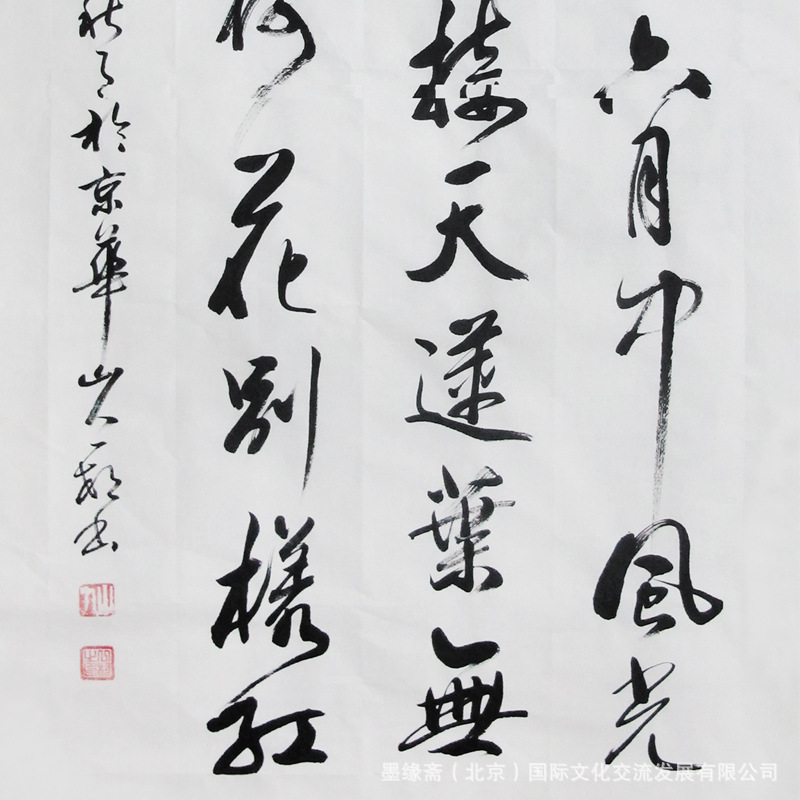 六月中風光
接天蓮葉無
花別樣紅
於京華
墨缘斋（北京）国际文化交流发展有限公司